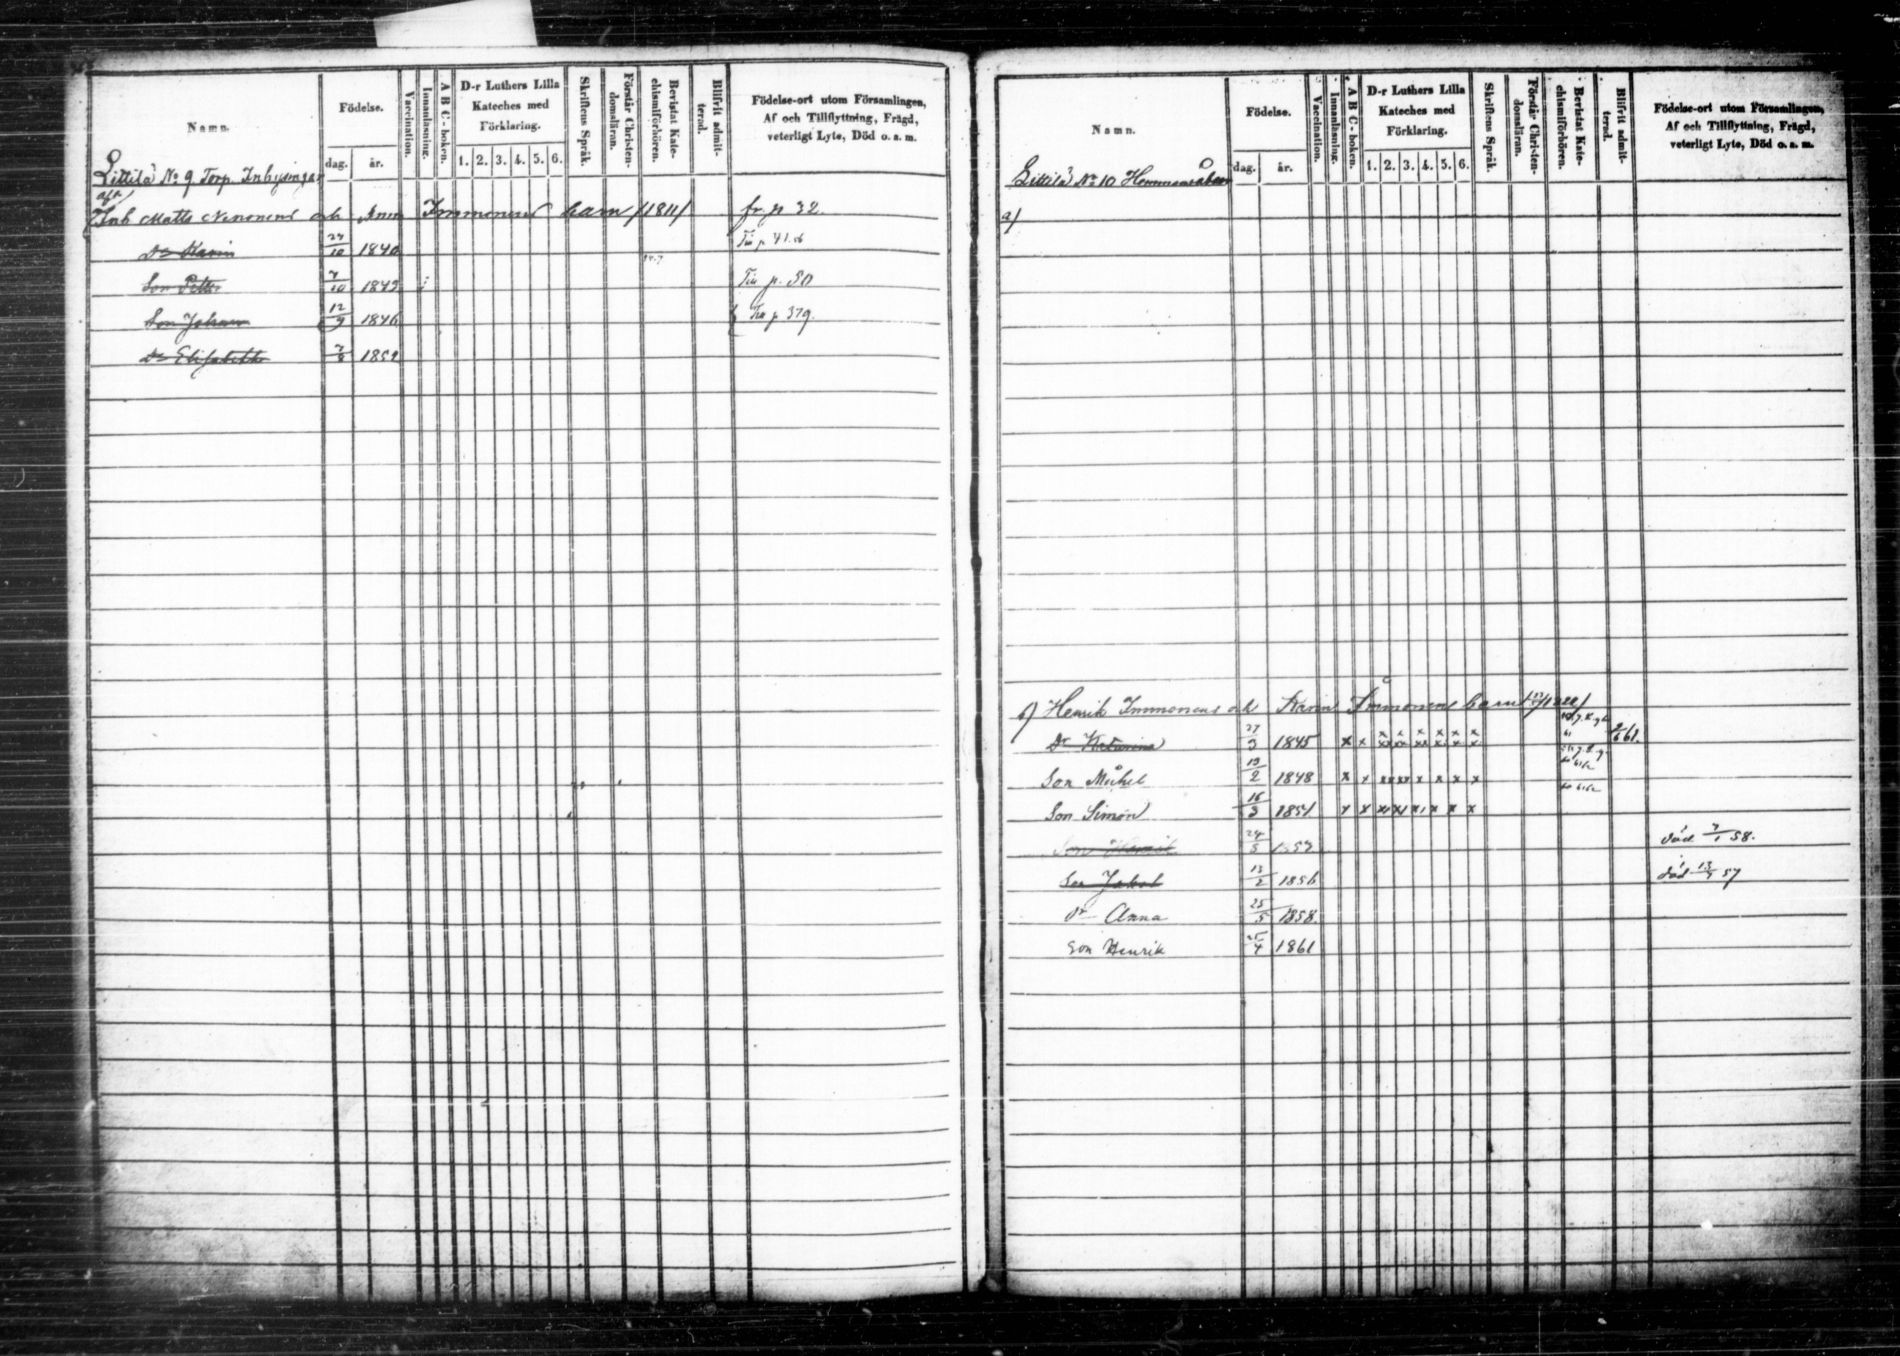 Namn.
Födelse.
dag. år.
Vaccination.
Innanläsning.
A B C-boken.
D-r Luthers Lilla
Kateches med
Förklaring.
1. 2. 3. 4. 5. 6.
Skriftens Språk.
Förstår Christen-
domsläran.
Bevistat Kate-
chismiförhören.
Blifvit admit-
terad.
Födelse-ort utom Församlingen,
Af och Tillflyttning, Frägd,
veterligt Lyte, Död o. s. m.
Littilä No 9 Torp. Inhysingar
Inh Matts Nenonens och Anna Immonens barn /1811/ fr. p 32.
Dr Karin 24/10 1840 Tin p. 41.
Son Petter 7/10 1843 Tin p. 50
Son Johan 12/9 1846 Tin p 379.
Dr Elisabeth 7/8 1852
Namn.
Födelse.
dag. år.
Vaccination.
Innanläsning.
A B C-boken.
D-r Luthers Lilla
Kateches med
Förklaring.
1. 2. 3. 4. 5. 6.
Skriftens Språk.
Förstår Christen-
domsläran.
Bevistat Kate-
chismiförhören.
Blifvit admit-
terad.
Födelse-ort utom Församlingen,
Af och Tillflyttning, Frägd,
veterligt Lyte, Död o. s. m.
Littilä No 10 Hemmansåboer
a)
b) Henrik Immonens och Karin Immonens barn
Dr Katarina 27/3 1845 x x x x x x x x 61
Son Michel 13/2 1848 x x xx xx x x x x
Son Simon 16/3 1851 x x x x x x x x
Son Henrik 24/5 1853 död 7/1 58.
Son Jakob 13/2 1856 död 13/7 57
Dr Anna 25/5 1858
Son Henrik 25/4 1861